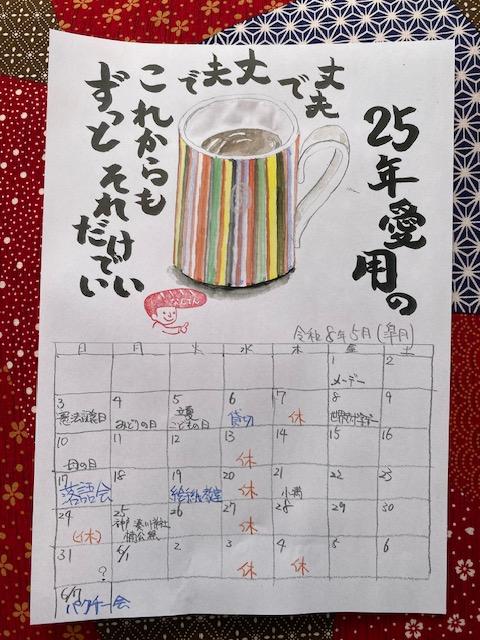 25年愛用の
丈夫で丈夫で
これからも
ずっとそれだけでいい
なんてん
令和8年5月(皐月)
日 月 火 水 木 金 土
1 2
メーデー
3 4 5 6 7 8 9
憲法記念日 みどりの日 立夏 こどもの日 貸切 休 世界赤十字デー
10 11 12 13 14 15 16
母の日 休
17 18 19 20 21 22 23
落語会 絵手紙教室 休 小満
24 25 26 27 28 29 30
(休) 神戸 湊川神社 楠公祭 休
31 6/1 2 3 4 5 6
? 休 休
6/7
パクチー会